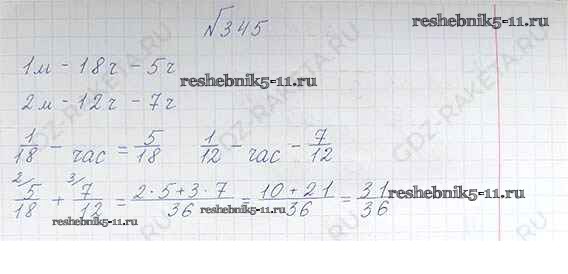 №345
reshebnik5-11.ru
1м - 18ч - 5ч
reshebnik5-11.ru
2м - 12ч - 7ч
1/18 - час = 5/18 1/12 - час - 7/12
2/ 5/18 + 3/ 7/12 = 2·5+3·7/36 = 10+21/36 = 31/36
reshebnik5-11.ru
reshebnik5-11.ru
reshebnik5-11.ru
GDZ-RAKETA.RU
GDZ-RAKETA.RU
GDZ-RAKETA.RU